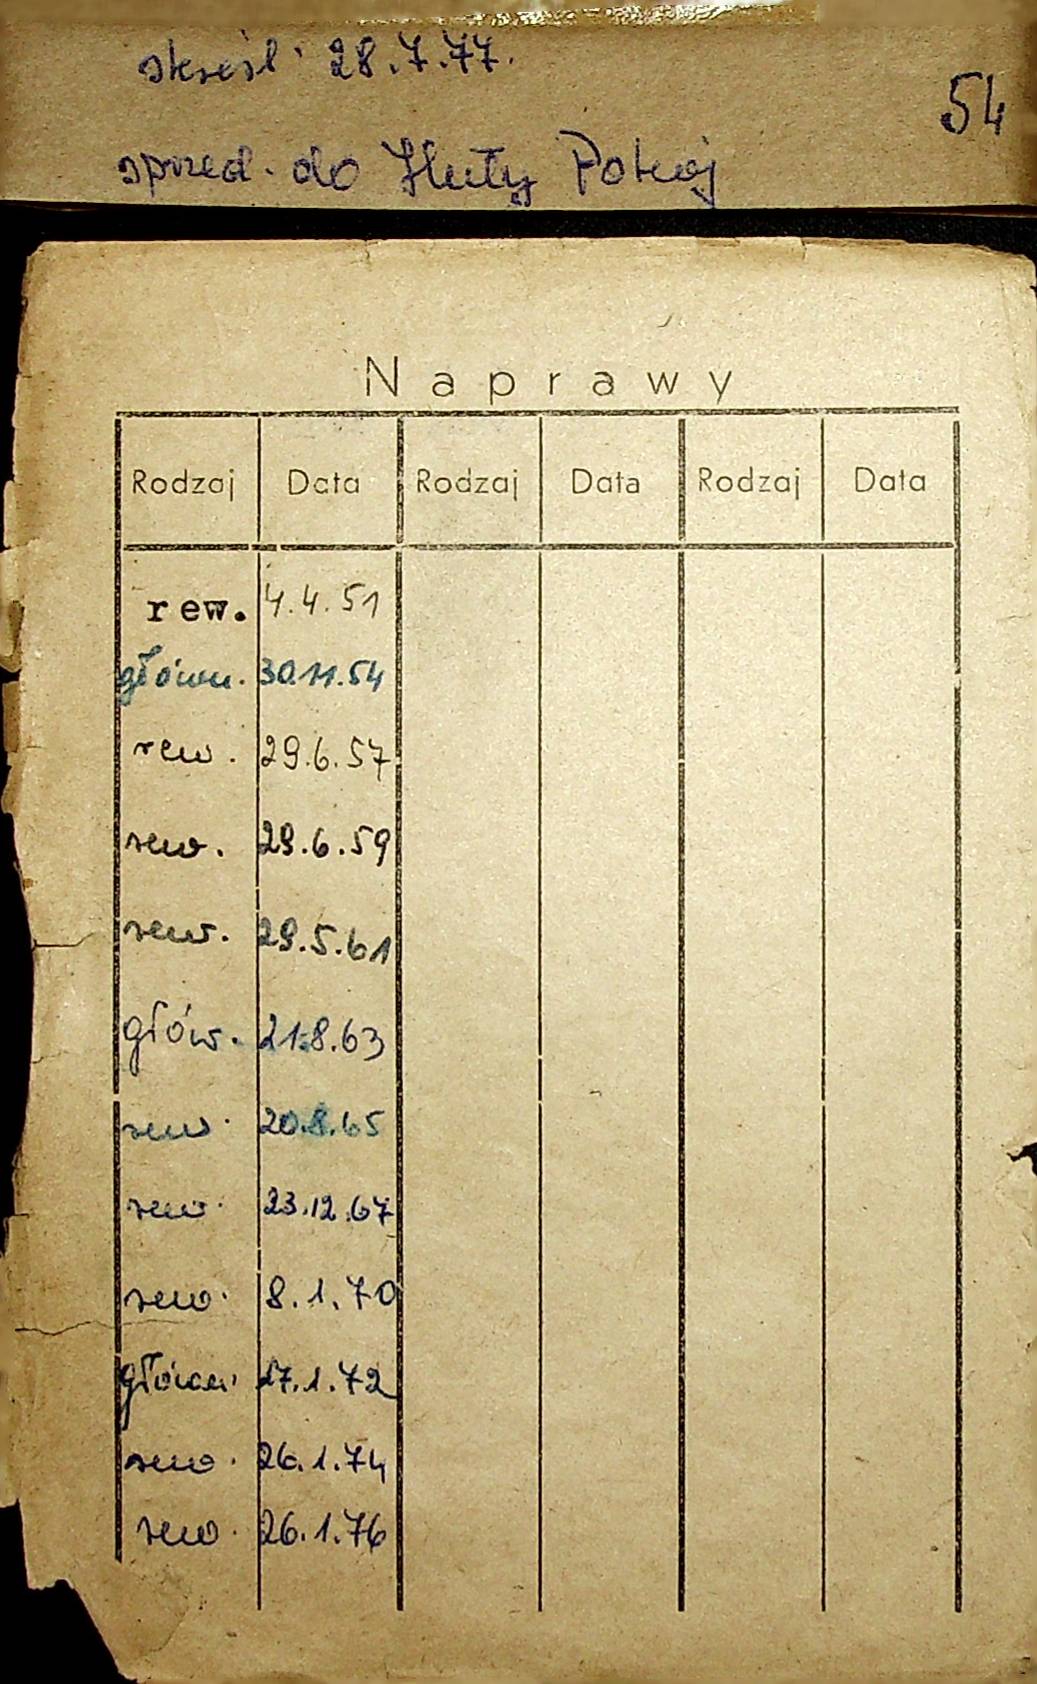 skreśl. 28.7.77.
54
sprzed. do Huty Pokój
Naprawy
Rodzaj Data Rodzaj Data Rodzaj Data
rew. 4.4.51
główn. 30.11.54
rew. 29.6.57
rew. 29.6.59
rew. 29.5.61
głów. 21.8.63
rew. 20.8.65
rew. 23.12.67
rew. 8.1.70
główn. 17.1.72
rew. 26.1.74
rew. 26.1.76